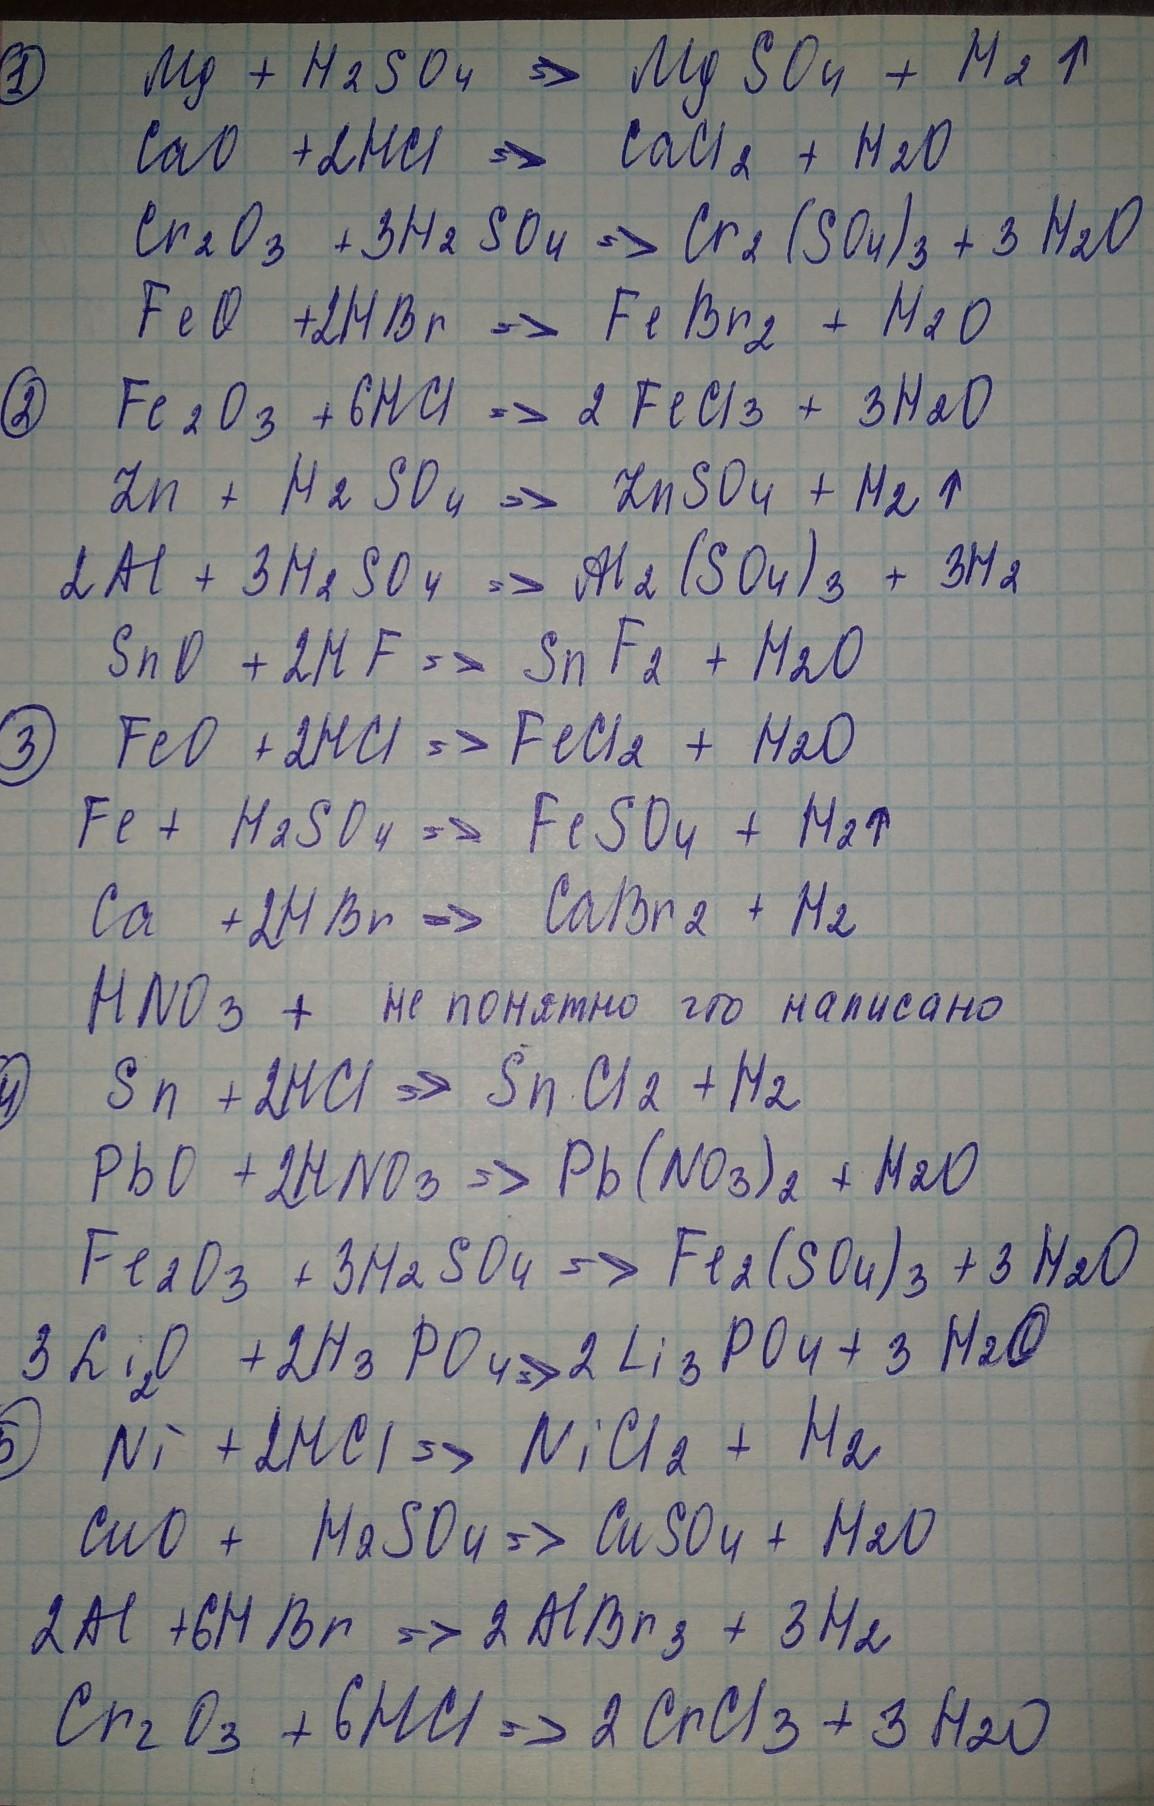 ① Mg + H2SO4 => MgSO4 + H2↑
CaO + 2HCl => CaCl2 + H2O
Cr2O3 + 3H2SO4 => Cr2(SO4)3 + 3H2O
FeO + 2HBr => FeBr2 + H2O
② Fe2O3 + 6HCl => 2FeCl3 + 3H2O
Zn + H2SO4 => ZnSO4 + H2↑
2Al + 3H2SO4 => Al2(SO4)3 + 3H2
SnO + 2HF => SnF2 + H2O
③ FeO + 2HCl => FeCl2 + H2O
Fe + H2SO4 => FeSO4 + H2↑
Ca + 2HBr => CaBr2 + H2
HNO3 + не понятно что написано
④ Sn + 2HCl => SnCl2 + H2
PbO + 2HNO3 => Pb(NO3)2 + H2O
Fe2O3 + 3H2SO4 => Fe2(SO4)3 + 3H2O
3Li2O + 2H3PO4 => 2Li3PO4 + 3H2O
⑤ Ni + 2HCl => NiCl2 + H2
CuO + H2SO4 => CuSO4 + H2O
2Al + 6HBr => 2AlBr3 + 3H2
Cr2O3 + 6HCl => 2CrCl3 + 3H2O